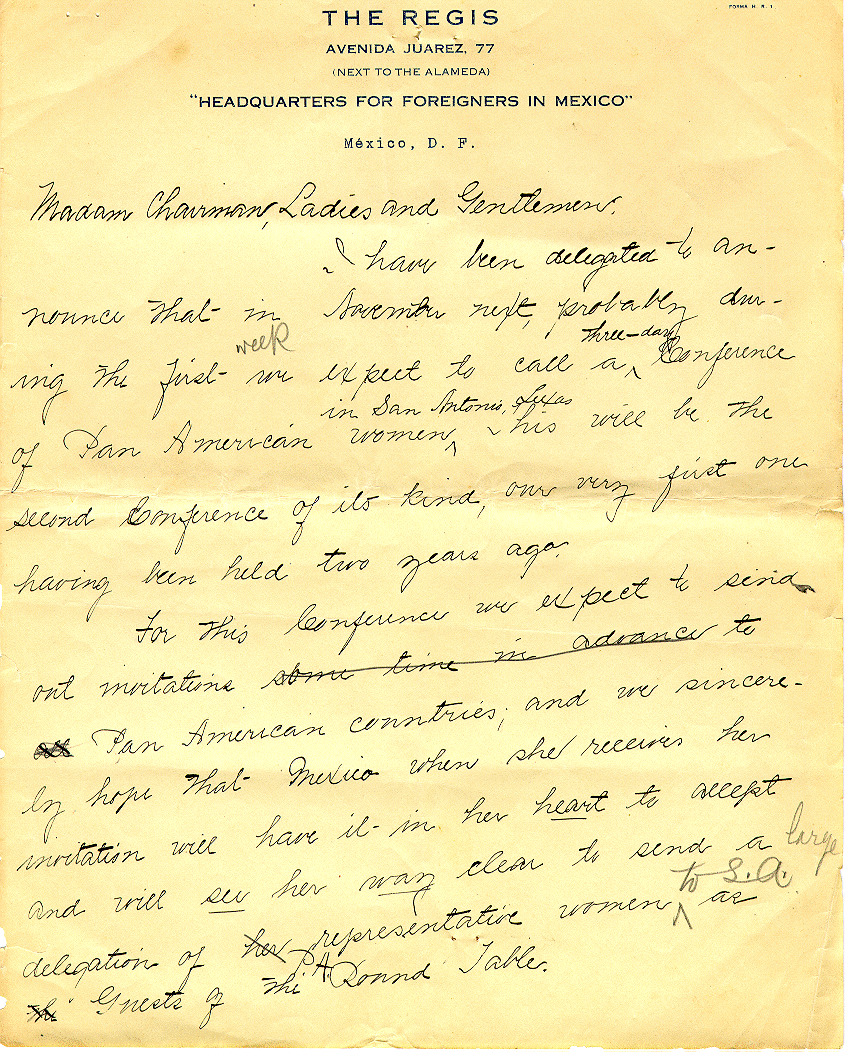 FORMA H. R. 1.
THE REGIS
AVENIDA JUAREZ, 77
(NEXT TO THE ALAMEDA)
"HEADQUARTERS FOR FOREIGNERS IN MEXICO"
México, D. F.
Madam Chairman, Ladies and Gentlemen.
I have been delegated to an-
nounce that in November next, probably dur-
ing the first week we expect to call a three-day Conference
of Pan American women in San Antonio, Texas This will be the
second Conference of its kind, our very first one
having been held two years ago.
For this Conference we expect to send
out invitations some time in advance to
all Pan American countries, and we sincere-
ly hope that Mexico when she receives her
invitation will have it in her heart to accept
and will see her way clear to send a large
delegation of her representative women to S.A. as
the Guests of the P.A. Round Table.